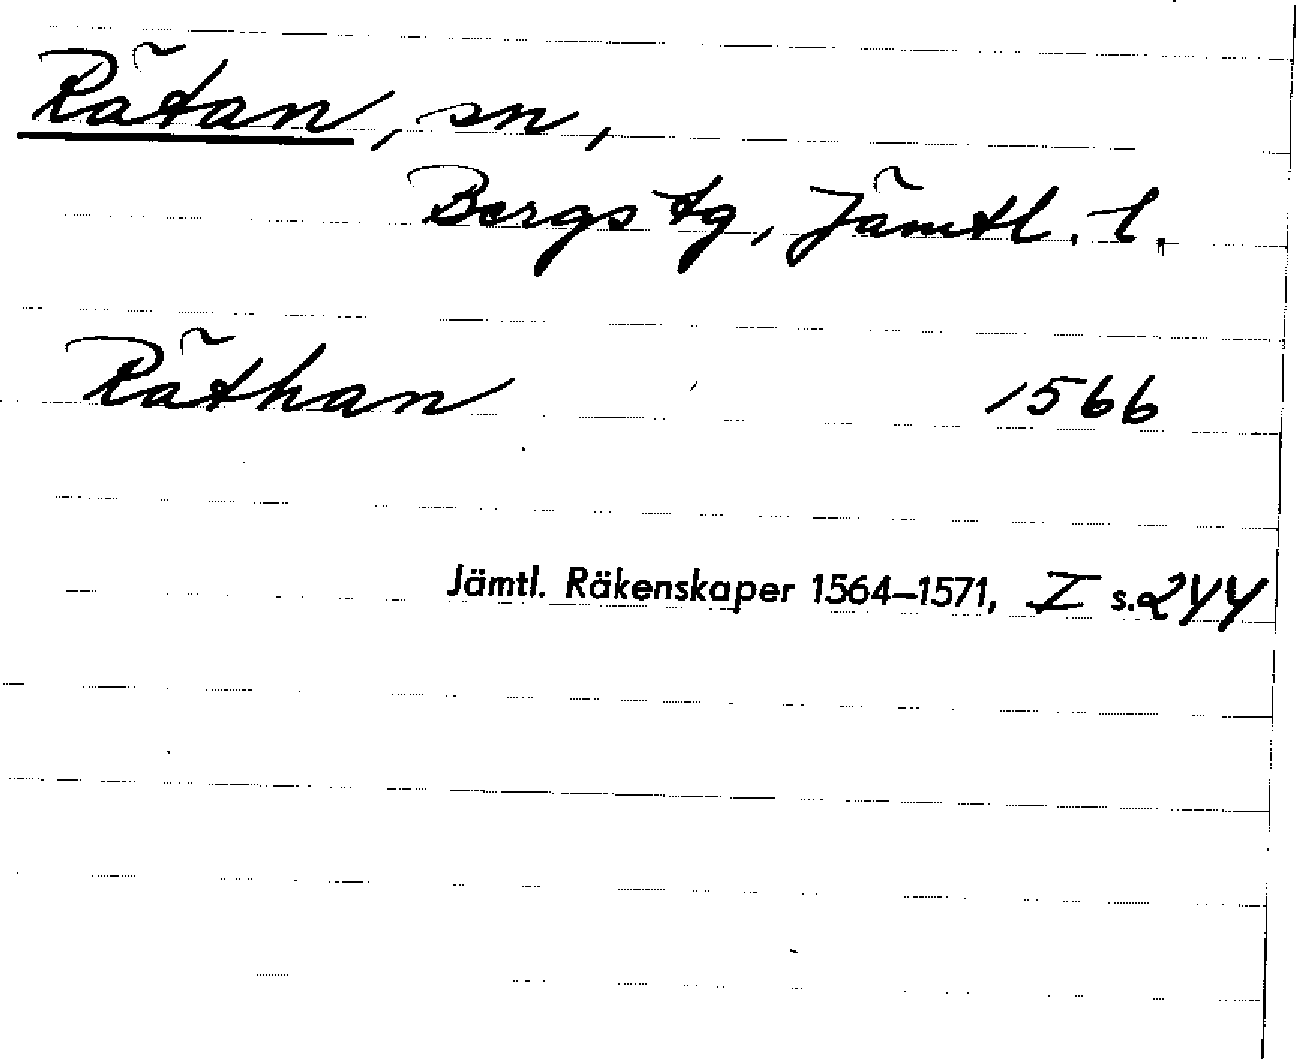 Rätan, sn,
Bergs tg, Jämtl. l.
Räthan 1566
Jämtl. Räkenskaper 1564–1571, I s. 244